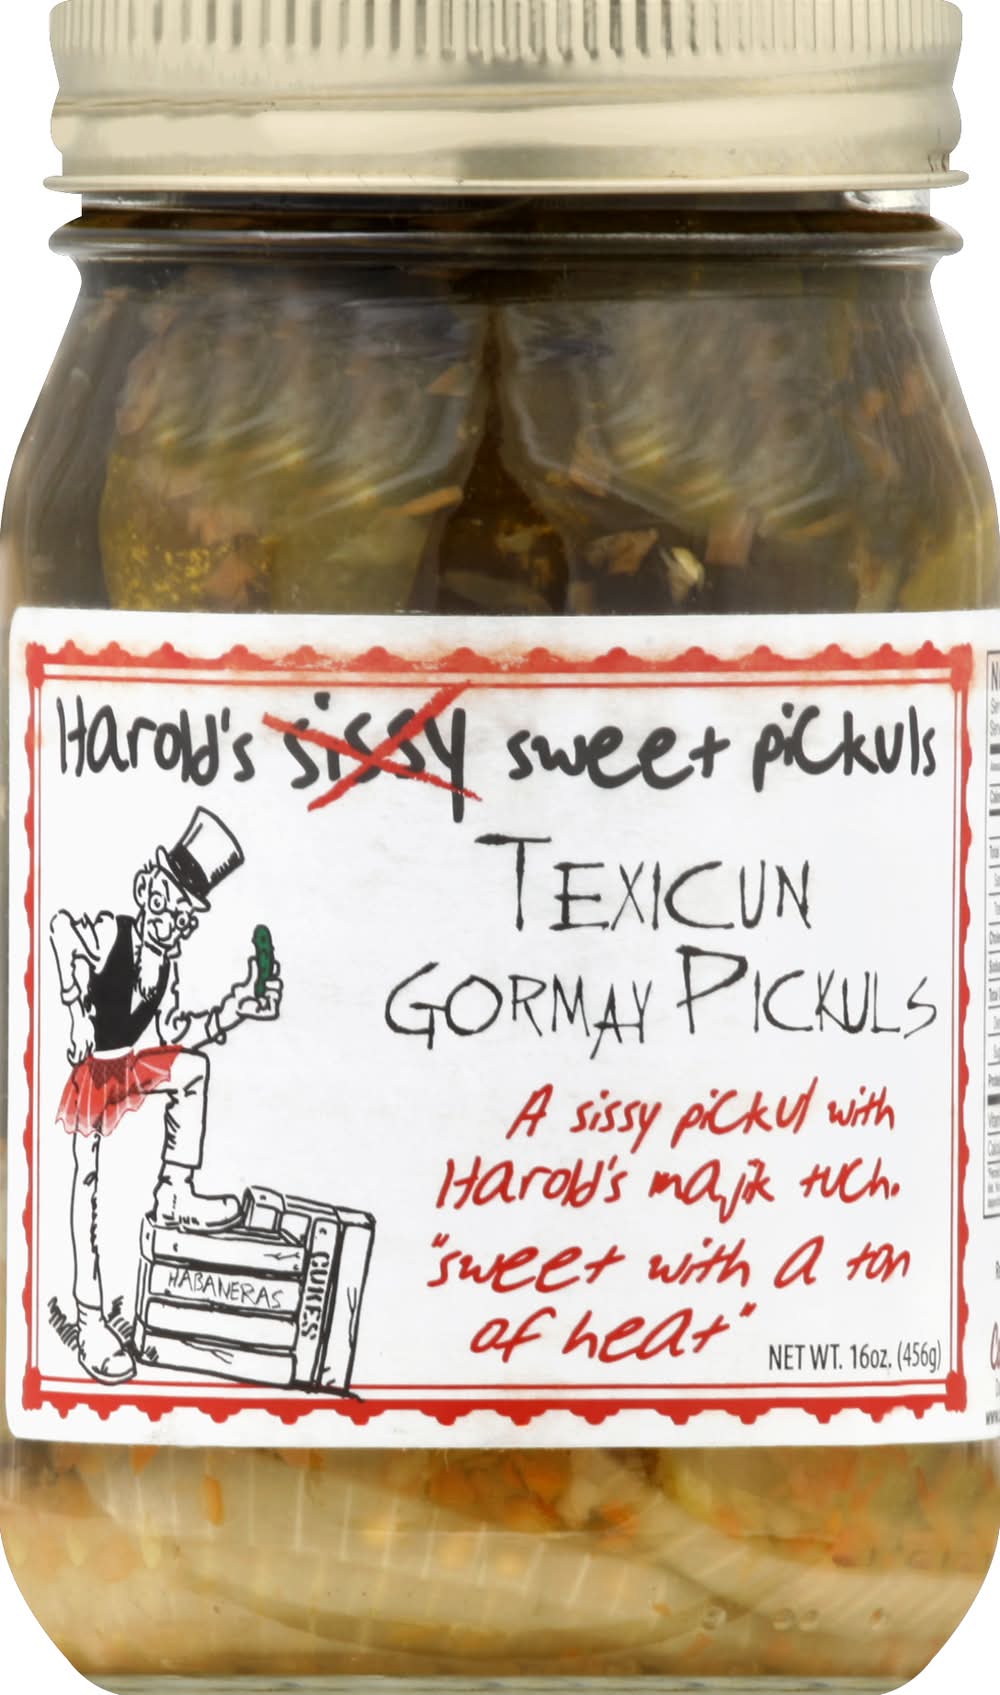 Harold's sissy sweet pickuls
TEXICUN
GORMAY PICKULS
A sissy pickul with
Harold's majik tuch.
"sweet with a ton
of heat"
NET WT. 16oz. (456g)
HABANERAS
CUKES